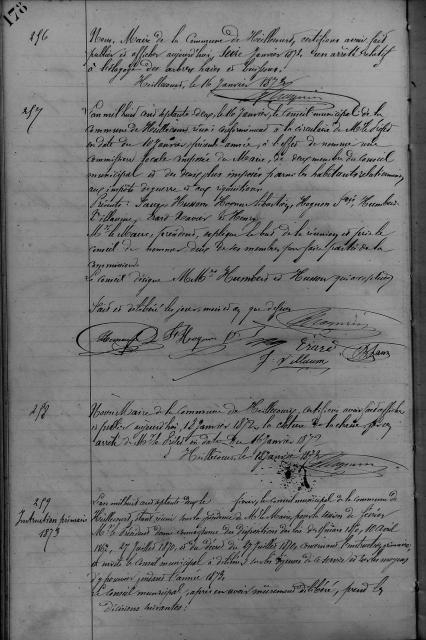 178
256
Nous, Maire de la Commune de Heillecourt, certifions avoir fait
publier et afficher aujourd'hui, seize Janvier 1872 un arrêté relatif
à l'élagage des arbres haies et buissons.
Heillecourt, le 16 Janvier 1872
257
L'an mil huit cent septante deux, le 16 janvier, le Conseil municipal de la
commune de Heillecourt réuni conformément à la circulaire de Mr le Préfet
en date du 10 janvier présent année, à l'effet de nommer une
commission locale composée du Maire, de deux membres du Conseil
municipal et des deux plus imposés parmi les habitants relativement
aux impôts de guerre et aux réquisitions.
Présents:
Mr le Maire, président, explique le but de la réunion et prie le
conseil de nommer deux de ses membres pour faire partie de la
commission.
Le Conseil désigne M.Mrs Humbert et Husson qui acceptent
Fait et délibéré les jour, mois et an que dessus
258
Nous Maire de la Commune de Heillecourt, certifions avoir fait afficher
et publier aujourd'hui, 18 Janvier 1872, la clôture de la chasse
arrêté de Mr le Préfet en date du 16 Janvier 1872
Heillecourt, le 18 janvier 1872
259
Instruction primaire
1873
L'an mil huit cent septante deux le février, le Conseil municipal de la commune de
Heillecourt, étant réuni sous la présidence de Mr le Maire, pour la session de février
Mr le Président donne connaissance des dispositions des lois des 15 Mars 1850, 10 Avril
1867, 27 Juillet 1870, et du décret du 27 Juillet 1870 concernant l'instruction primaire,
et invite le Conseil municipal à délibérer sur les dépenses de ce service et sur les moyens
d'y pourvoir pendant l'année 1873.
Le Conseil municipal, après en avoir mûrement délibéré, prend les
décisions suivantes: